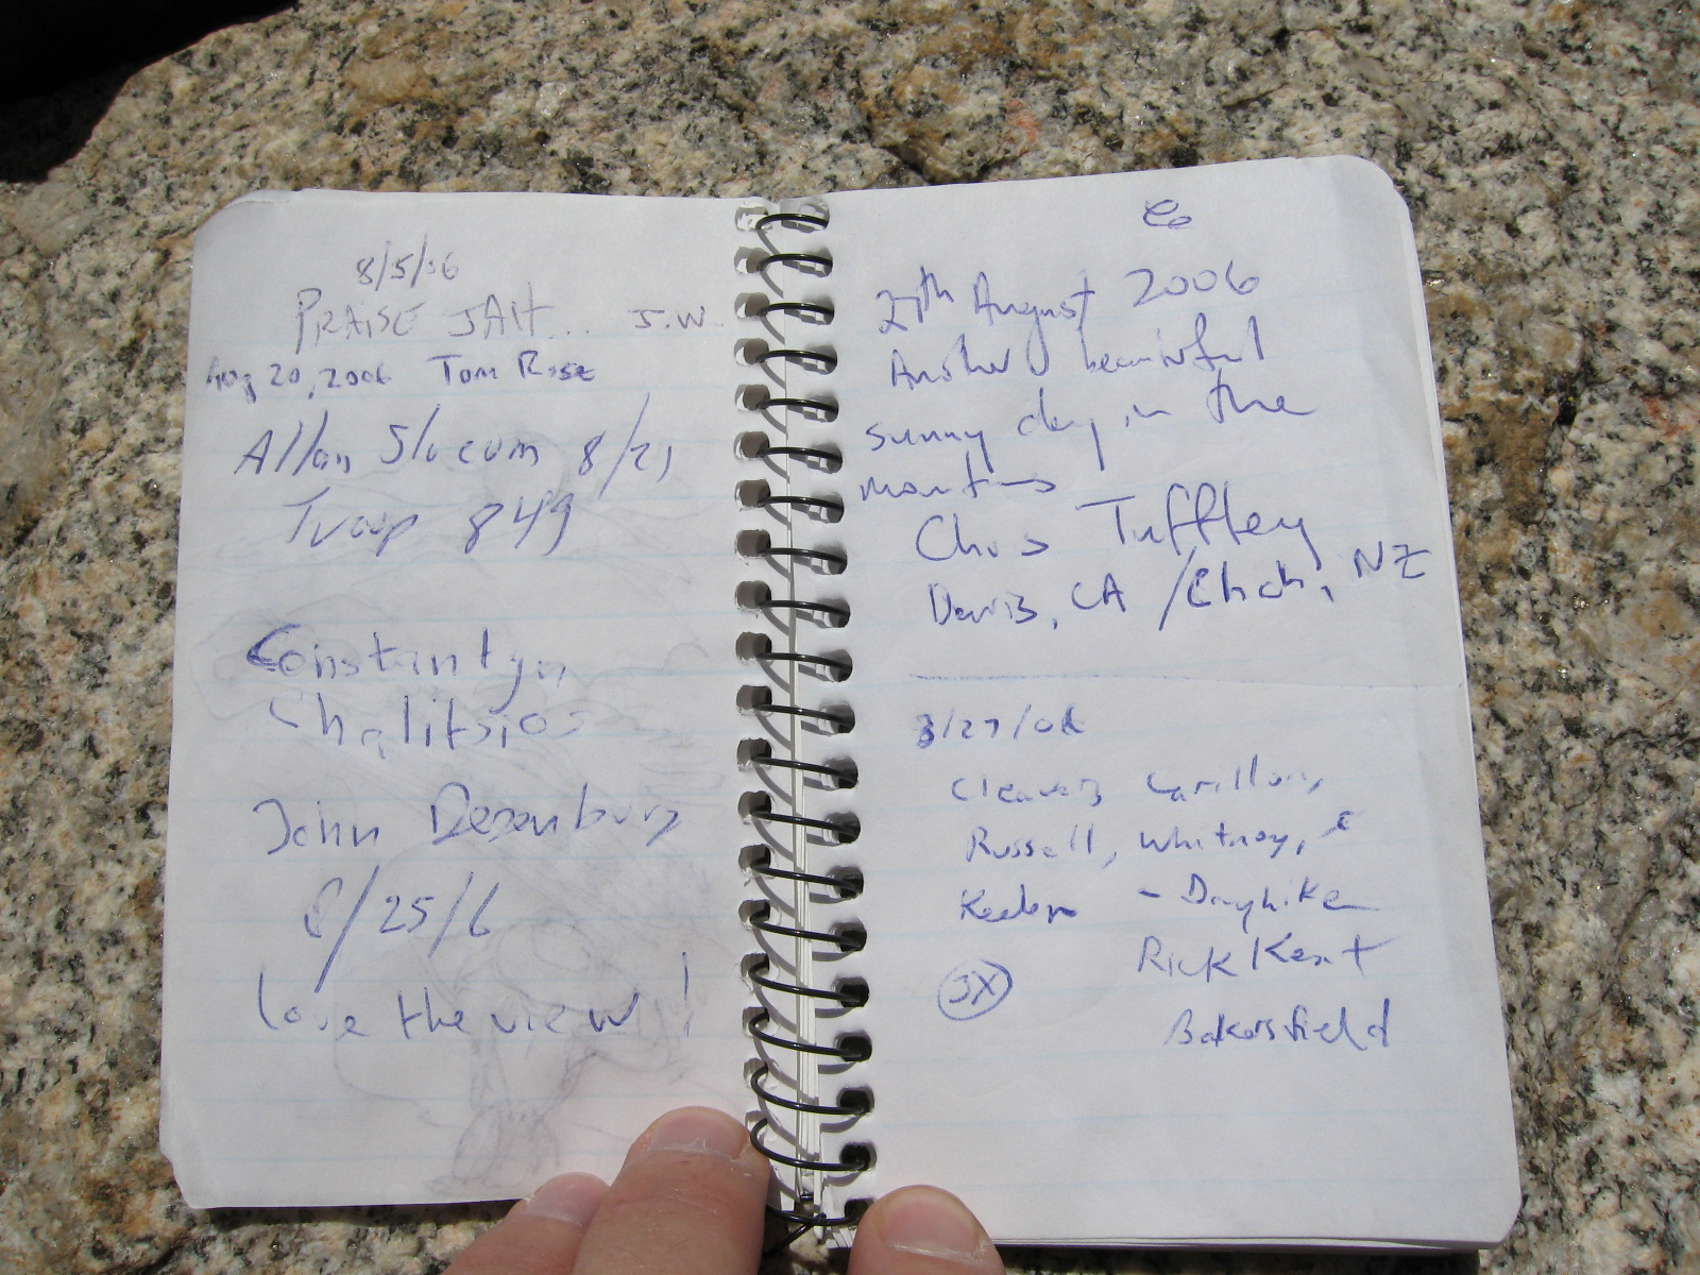 8/5/06
PRAISE JAH... J.W.
Aug 20, 2006 Tom Rose
Allan Slocum 8/21
Troop 849
Constantyn
Chalitsios
John
8/25/6
love the view!
27th August 2006
Another beautiful
sunny day in the
Chris Tuffley
Davis, CA / Chch, NZ
8/27/06
Cleaver, Carillon,
Russell, Whitney, &
Keeler - Dayhike
Rick Kent
Bakersfield